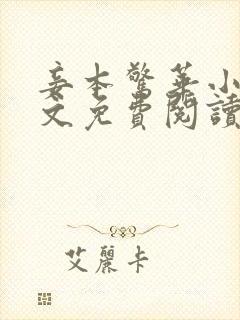 妾本驚華小
文免費閱讀
艾麗卡